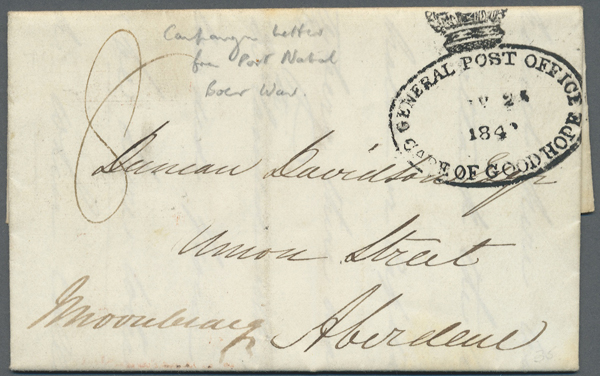 Campaign Letter
from Port Natal
Boer War.
GENERAL POST OFFICE
25
184
CAPE OF GOOD HOPE
8
Duncan Davidson Esqr
Union Street
Aberdeen